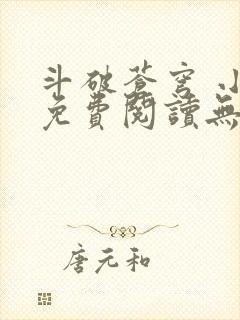 斗破苍穹 小
免費閱讀無
唐元和